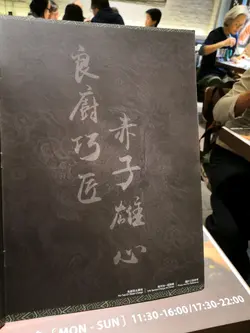 良廚巧匠
赤子雄心
[MON - SUN] 11:30-16:00/17:30-22:00